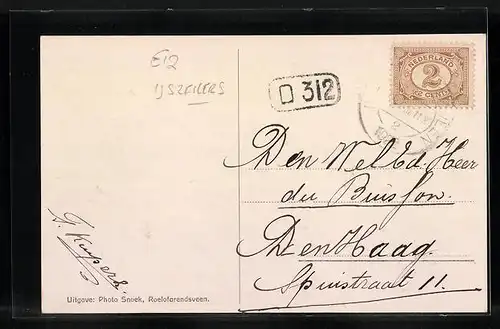 E12
IJSZEILERS
D 312
NEDERLAND
2
CENT
Den Wel Ed. Heer
du Buisson.
Den Haag.
Spuistraat 11.
A. Kuipers.
Uitgave: Photo Sneek, Roelofarendsveen.